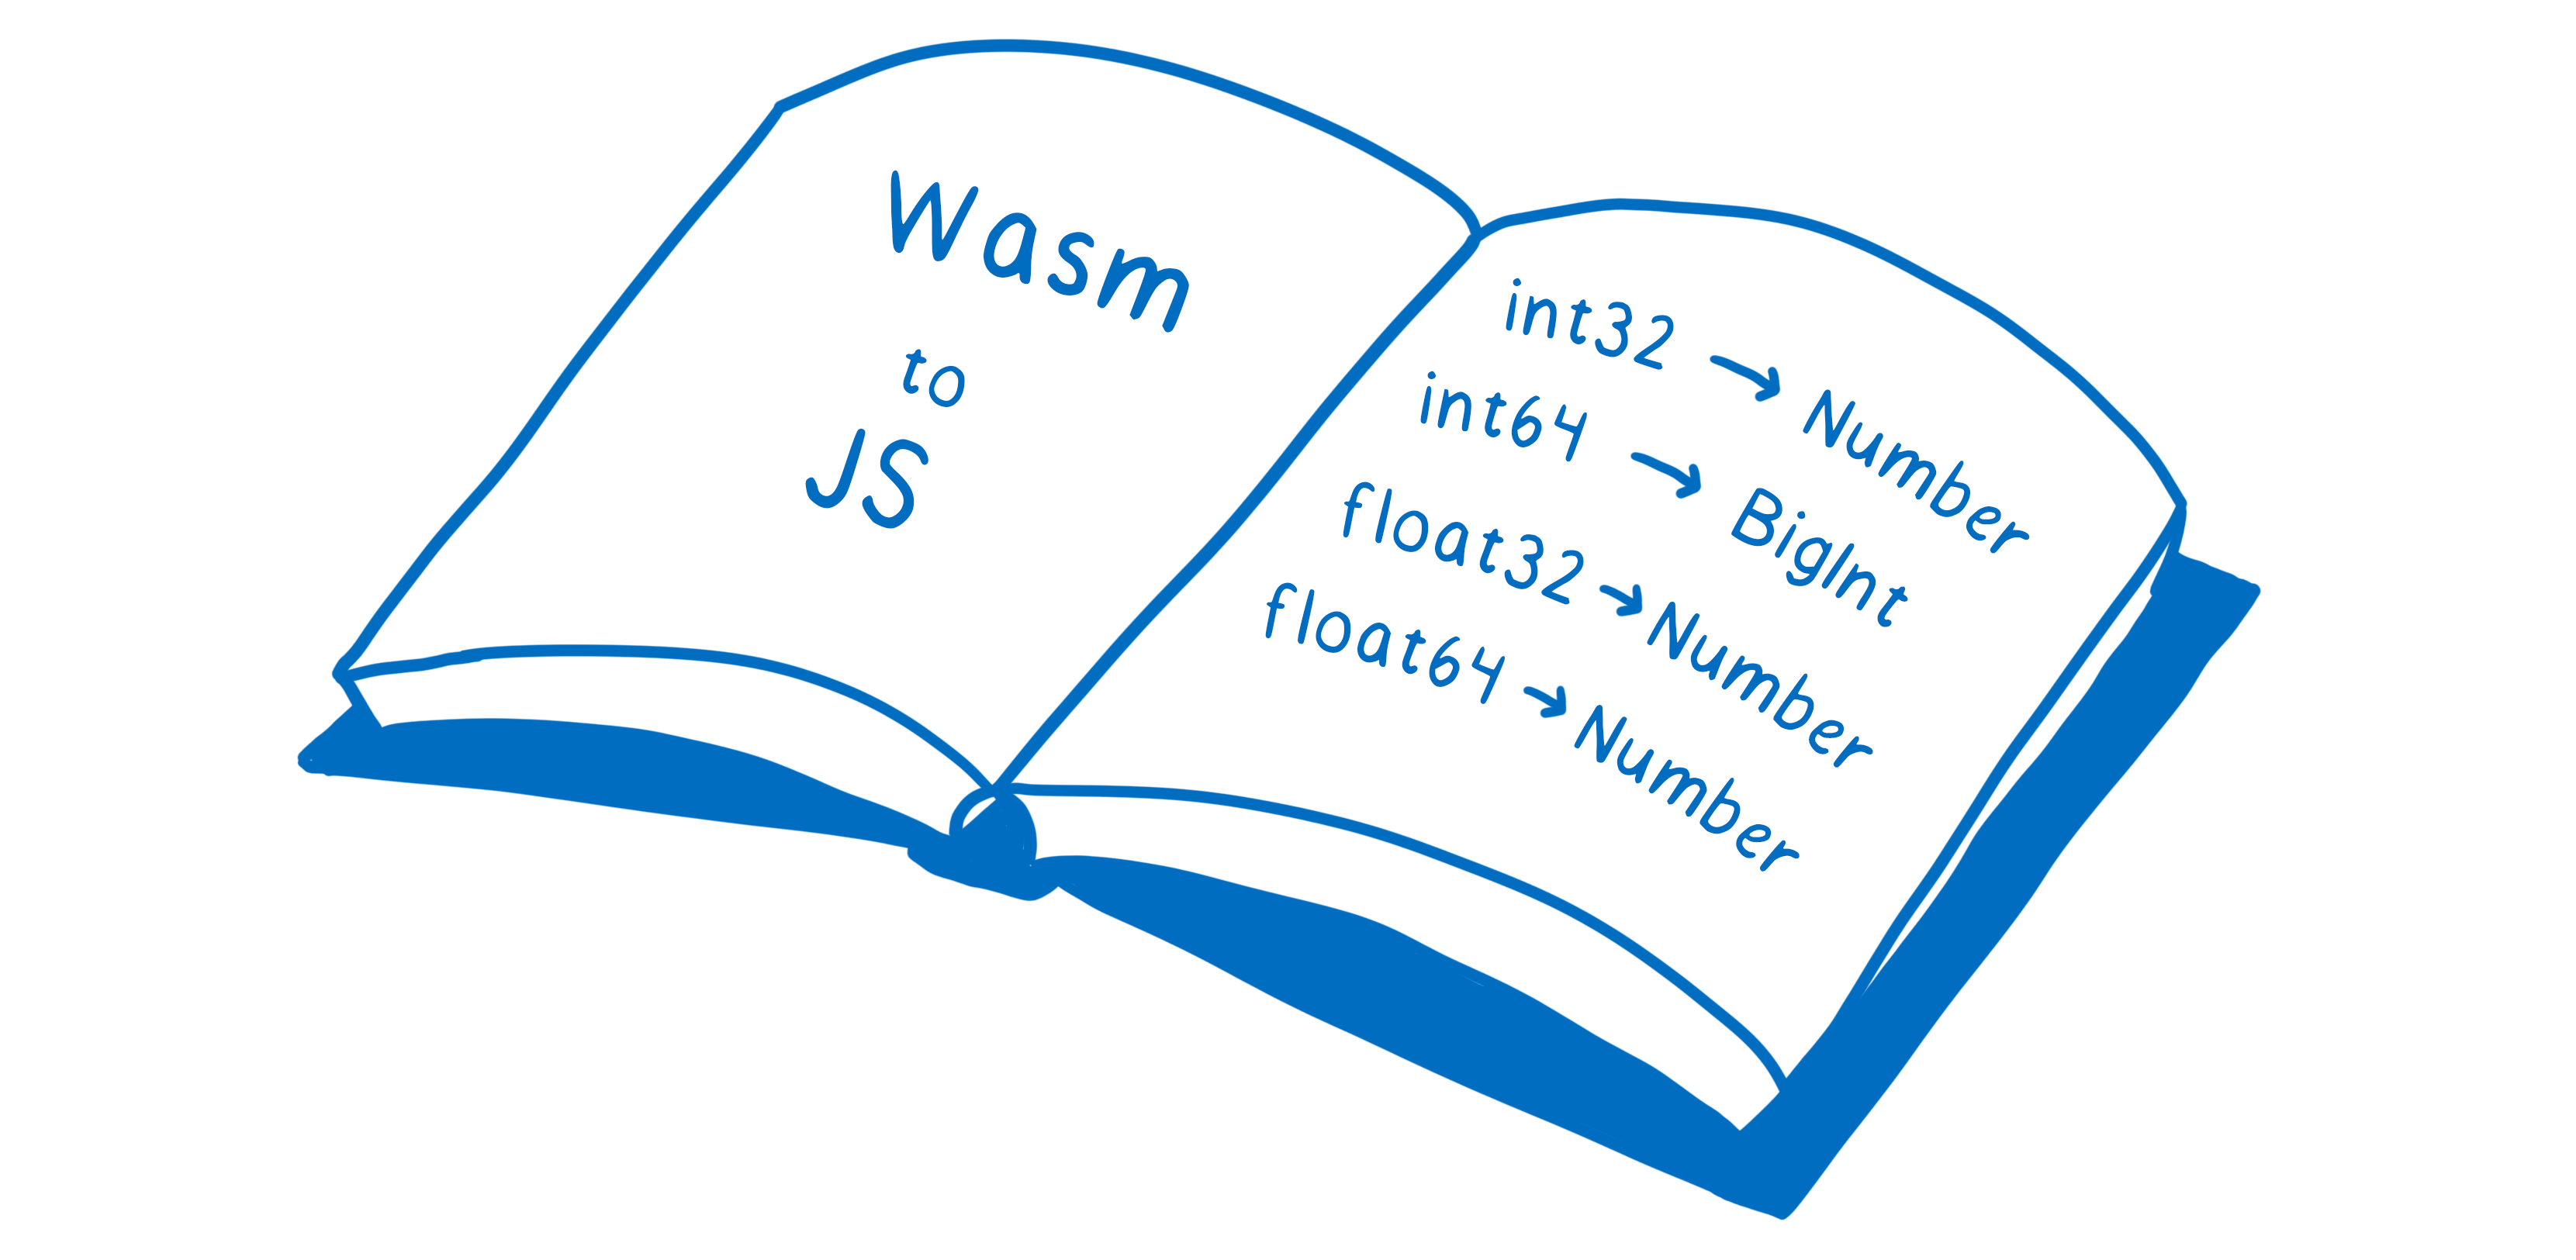 Wasm
to
JS
int32 → Number
int64 → BigInt
float32 → Number
float64 → Number